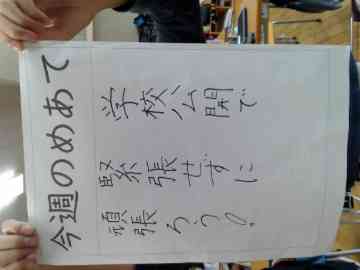 今週のめあて
学校公開で
緊張せずに
頑張ろう。